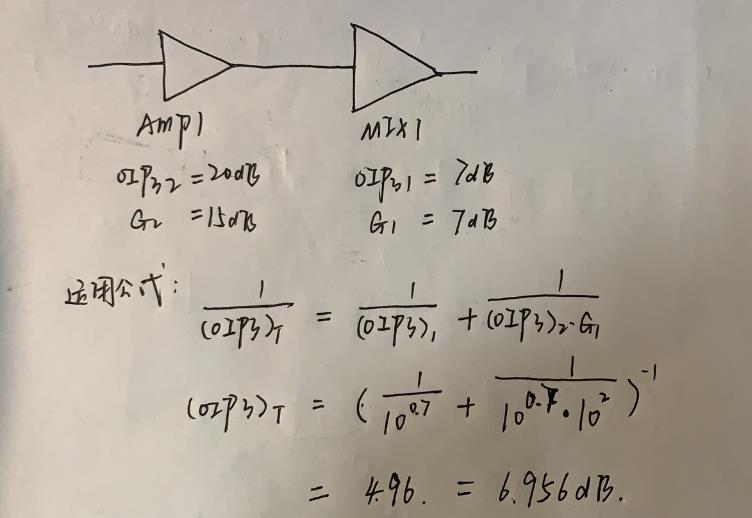 Amp1 MIX1
OIP32 = 20dB OIP31 = 7dB
G2 = 15dB G1 = 7dB
适用公式: 1/(OIP3)T = 1/(OIP3)1 + 1/(OIP3)2·G1
(OIP3)T = (1/10^0.7 + 1/10^0.7·10^2)^-1
= 4.96. = 6.956dB.